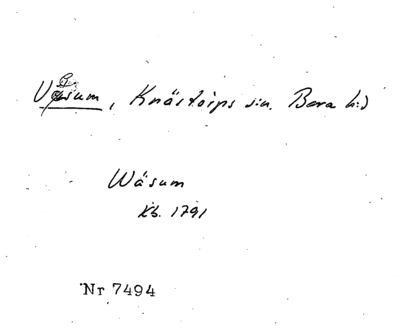 Väsum, Knästorps sn. Bara hd
Wäsum
Kb. 1791
Nr 7494